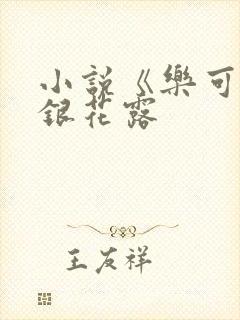 小説《樂可
銀花露
王友祥